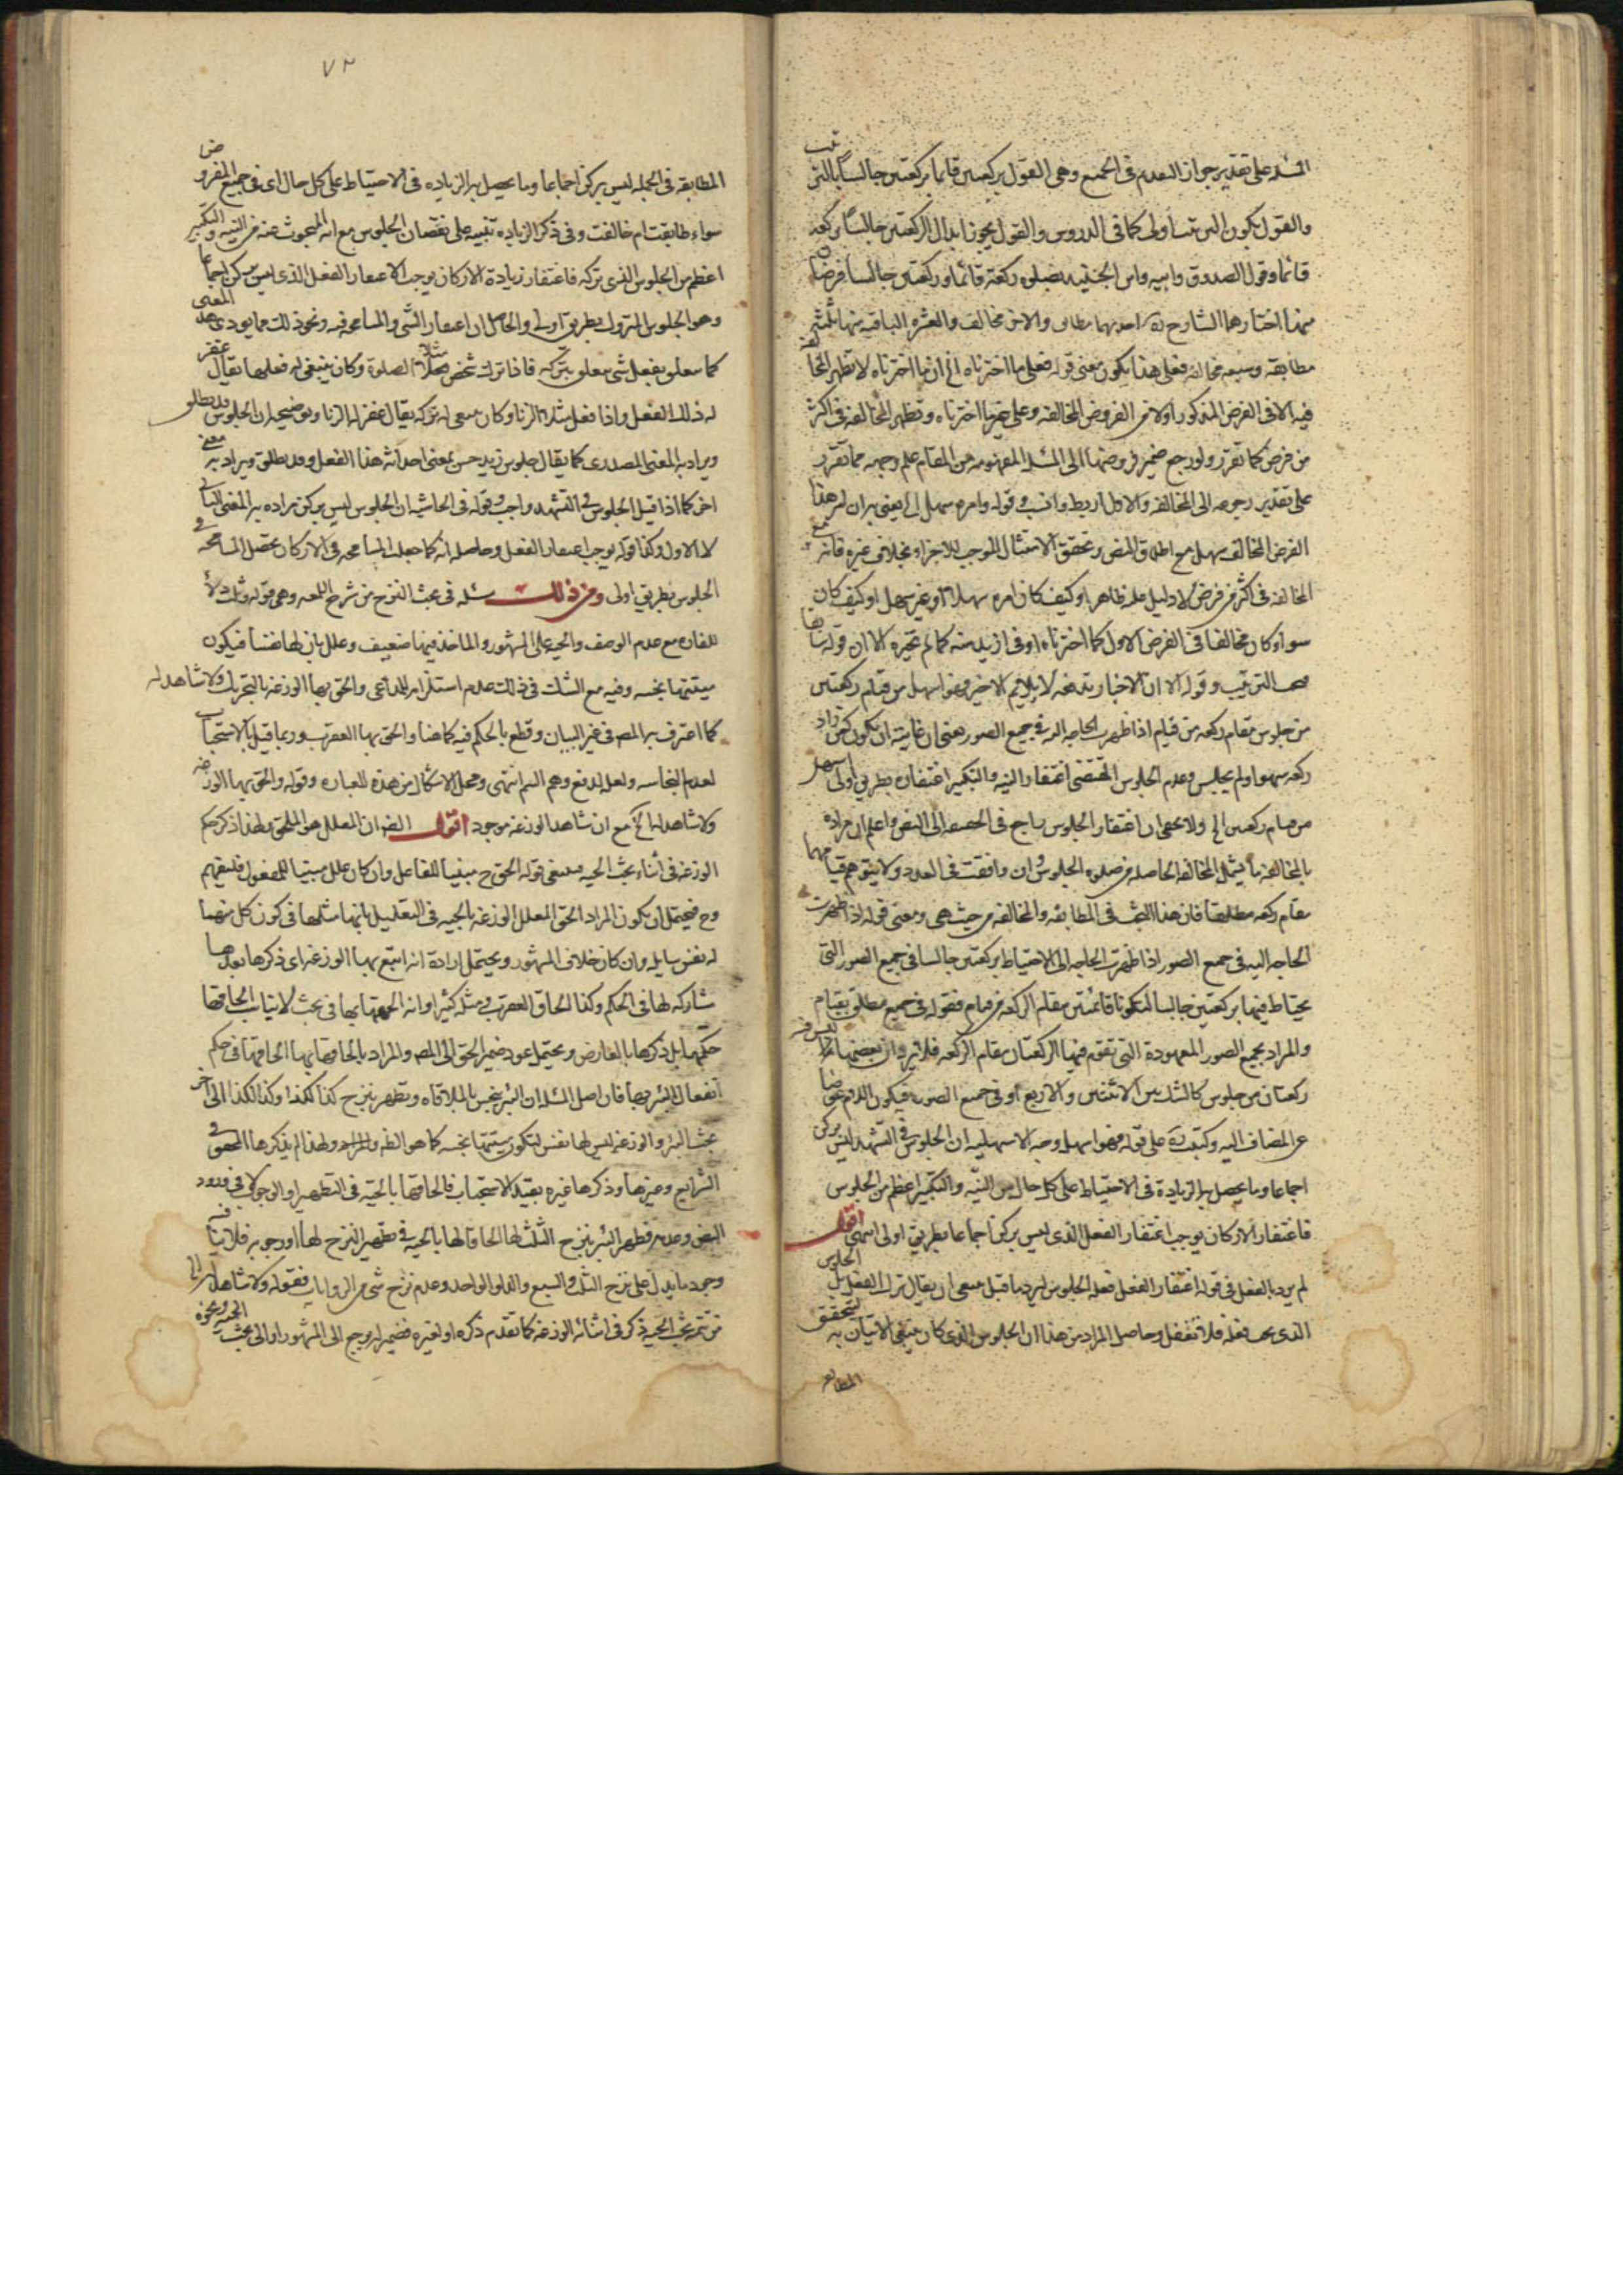 المسئله على تقدير جواز التقدم فى الجميع وهى القول بركعتين قايما بركعتين جالسا بالترتيب
والقول بكون الترتيب اولى كما فى الدروس والقول بجواز ابدال الركعتين جالسا بركعة
قائما وقول الصدوق وابيه وابن الجنيد ركعة قائما وركعتين جالسا فرضا
منها اختارهما الشارح احديهما مطابق والاخر مخالف والعشرة الباقية منها ثلثة
مطابقه وسبعه مخالفه فعلى هذا يكون معنى قوله فعلى ما اخترناه الخ ان ما اخترناه لا تظهر المخالفة
فيه الا فى الفرض المذكور اولا من الفروض المخالفه وعلى غير ما اخترناه وتظهر المخالفه فى اكثر
من فرض كما تقرر ولو رجع ضمير فروضها الى المسئلة المفهومه من المقام علم وجهه مما تقرر
على تقدير رجوعه الى المخالفه والاول اربط وانسب وقوله وامره سهل الخ يعنى به ان امر هذا
الفرض المخالف سهل مع اطلاق النص وتحقق الامتثال الموجب للاجزاء بخلاف غيره فانه مع
المخالفه فى اكثر من فرض لا دليل عليه ظاهرا وكيف كان امره سهلا او غير سهل او كيف كان
سواء كان مخالفا فى الفرض الاول كما اخترناه او فى ازيد منه كما لم نختره الا ان قوله
الترتيب وقوله الا ان الاخبار تدفعه لا يلايم الاخير وهو اسهل من قيام ركعتين
من جلوس مقام ركعه من قيام اذا ظهرت الحاجه اليه فى جميع الصور هى ان غايته ان يكون كمن زاد
ركعه سهوا ولم يجلس وعدم الجلوس المقتضى اغتفار النية والتكبير اغتفاره بطريق اولى اسهل
من قيام ركعتين الخ ولا يخفى ان اغتفار الجلوس راجع فى الحقيقه الى النص واعلم ان مراده
بالمخالفه ما يشمل المخالفه الحاصله من صلوة الجلوس وان وافقت فى العدد ولا يتوهم قيامهما
مقام ركعه مطلقا فان هذا البحث فى المطابقه والمخالفه من حيث هى ومعنى قوله اذا ظهرت
الحاجه اليه فى جميع الصور اذا ظهرت الحاجه الى الاحتياط بركعتين جالسا فى جميع الصور التى
يحتاط فيها بركعتين جالسا لتكونا قائمتين مقام الركعه من قيام فقوله فى جميع مطلق بقيام
والمراد بجميع الصور المعهودة التى تقوم فيها الركعتان مقام الركعه فلا يرد ان بعضها ليس فيه
ركعتان من جلوس كالشك بين الاثنتين والاربع او فى جميع الصور فيكون اللام عوضا
عن المضاف اليه وكتب ره على قوله فهو اسهل وجه الاسهليه ان الجلوس فى التشهد ليس بركن
اجماعا وما يحصل به الزيادة فى الاحتياط على كل حال من النيه والتكبير اعظم من الجلوس
فاغتفار الاركان يوجب اغتفار الفعل الذى ليس بركن اجماعا بطريق اولى انتهى اقول
لم يرد بالفعل فى قوله اغتفار الفعل فعل الجلوس ليرد ما قيل ينبغى ان يقال ترك الفعل بل الجلوس
الذى يجب فعله فلا تغفل وحاصل المراد من هذا ان الجلوس الذى كان ينبغى الاتيان به لتحقق
المطابقه
٧٣
المطابقه فى الجمله ليس بركن اجماعا وما يحصل به الزياده فى الاحتياط على كل حال اى فى جميع الفروض
سواء طابقت ام خالفت وفى ذكر الزياده تنبيه على نقصان الجلوس مع انه المبحوث عنه من النية والتكبير
اعظم من الجلوس الذى تركه فاغتفار زيادة الاركان يوجب اغتفار الفعل الذى ليس بركن اجماعا
وهو الجلوس المتروك بطريق اولى والحاصل ان اغتفار الشئ والمسامحه فيه ونحو ذلك مما يؤدى هذا المعنى
كما يتعلق بفعل شئ يتعلق بتركه فاذا ترك شخص مثلا الصلوة وكان ينبغى له فعلها يقال غفر
له ذلك الفعل واذا فعل مثلا الزنا وكان ينبغى له تركه يقال غفر له الزنا وتوضيحه ان الجلوس قد يطلق
ويراد به المعنى المصدرى كما يقال جلوس زيد حسن بمعنى احداثه هذا الفعل وقد يطلق ويراد به معنى
اخر كما اذا قيل الجلوس فى التشهد واجب وقوله فى الحاشيه ان الجلوس ليس بركن مراده به المعنى الثانى
لا الاول وكذا قوله يوجب اغتفار الفعل وحاصله انه كما جعلت المسامحه فى الاركان تحصل المسامحه فى
الجلوس بطريق اولى ومن ذلك مسئله فى بحث النزح من شرح اللمعه وهى قوله وثلث دلاء
للفاره مع عدم الوصف والحيه على المشهور والماخذ فيها ضعيف وعلل بان لها نفسا فيكون
ميتتها نجسه وفيه مع الشك فى ذلك عدم استلزامه للمدعى والحق بها الوزغه بالتحريك ولا شاهد له
كما اعترف به المص فى غير البيان وقطع بالحكم فيه كما هنا والحق بها العقرب وربما قيل بالاستحباب
لعدم النجاسه ولعله لدفع وهم السم انتهى ومحل الاشكال من هذه العباره وقوله والحق بها الوزغه
ولا شاهد له الخ مع ان شاهد الوزغه موجود اقول الظ ان المعلل هو الملحق ولهذا ذكر حكم
الوزغه فى اثناء بحث الحيه فينبغى قوله الحق ح مبنيا للفاعل وان كان علل مبنيا للمفعول فليفهم
وح فيحتمل ان يكون المراد الحق المعلل الوزغه بالحيه فى التعليل بانها مثلها فى كون كل منهما
له نفس سايله وان كان خلاف المشهور ويحتمل ارادة انه اتبع بها الوزغه اى ذكرها بعدها
مشاركه لها فى الحكم وكذا الحاق العقرب ومثله كثير او انه الحقها بها فى بحث لا لاثبات الحاقها
حكمها بل ذكرها بالعارض ويحتمل عود ضمير الحق الى المص والمراد بالحاقها بها الحاقها فى حكم
انفعال البئر بها فان اصل المسئله ان البئر ينجس بالملاقاه ويطهر بنزح كذا لكذا وكذا لكذا الى اخر
بحث البئر والوزغه ليس لها نفس لتكون ميتتها نجسه كما هو الظ والمراد ولهذا لم يذكرها المحقق فى
الشرايع وغيرها وذكرها غيره بقيد الاستحباب فالحاقها بالحيه فى التطهير او الوجوب لا فى ورود
النص وعدمه فطهر البئر بنزح الثلث لها الحاقا لها بالحيه فى تطهير النزح لها او وجوبه فلا ينافيه
وجود ما يدل على نزح الثلث والسبع والدلو الواحد وعدم نزح شئ من الروايات فقوله ولا شاهد له الخ
من تتمة بحث الحيه ذكر فى اثنائه الوزغه كما تقدم ذكره او لغيره فضمير له يرجع الى المشهور او الى بحث الحيه ونحوه